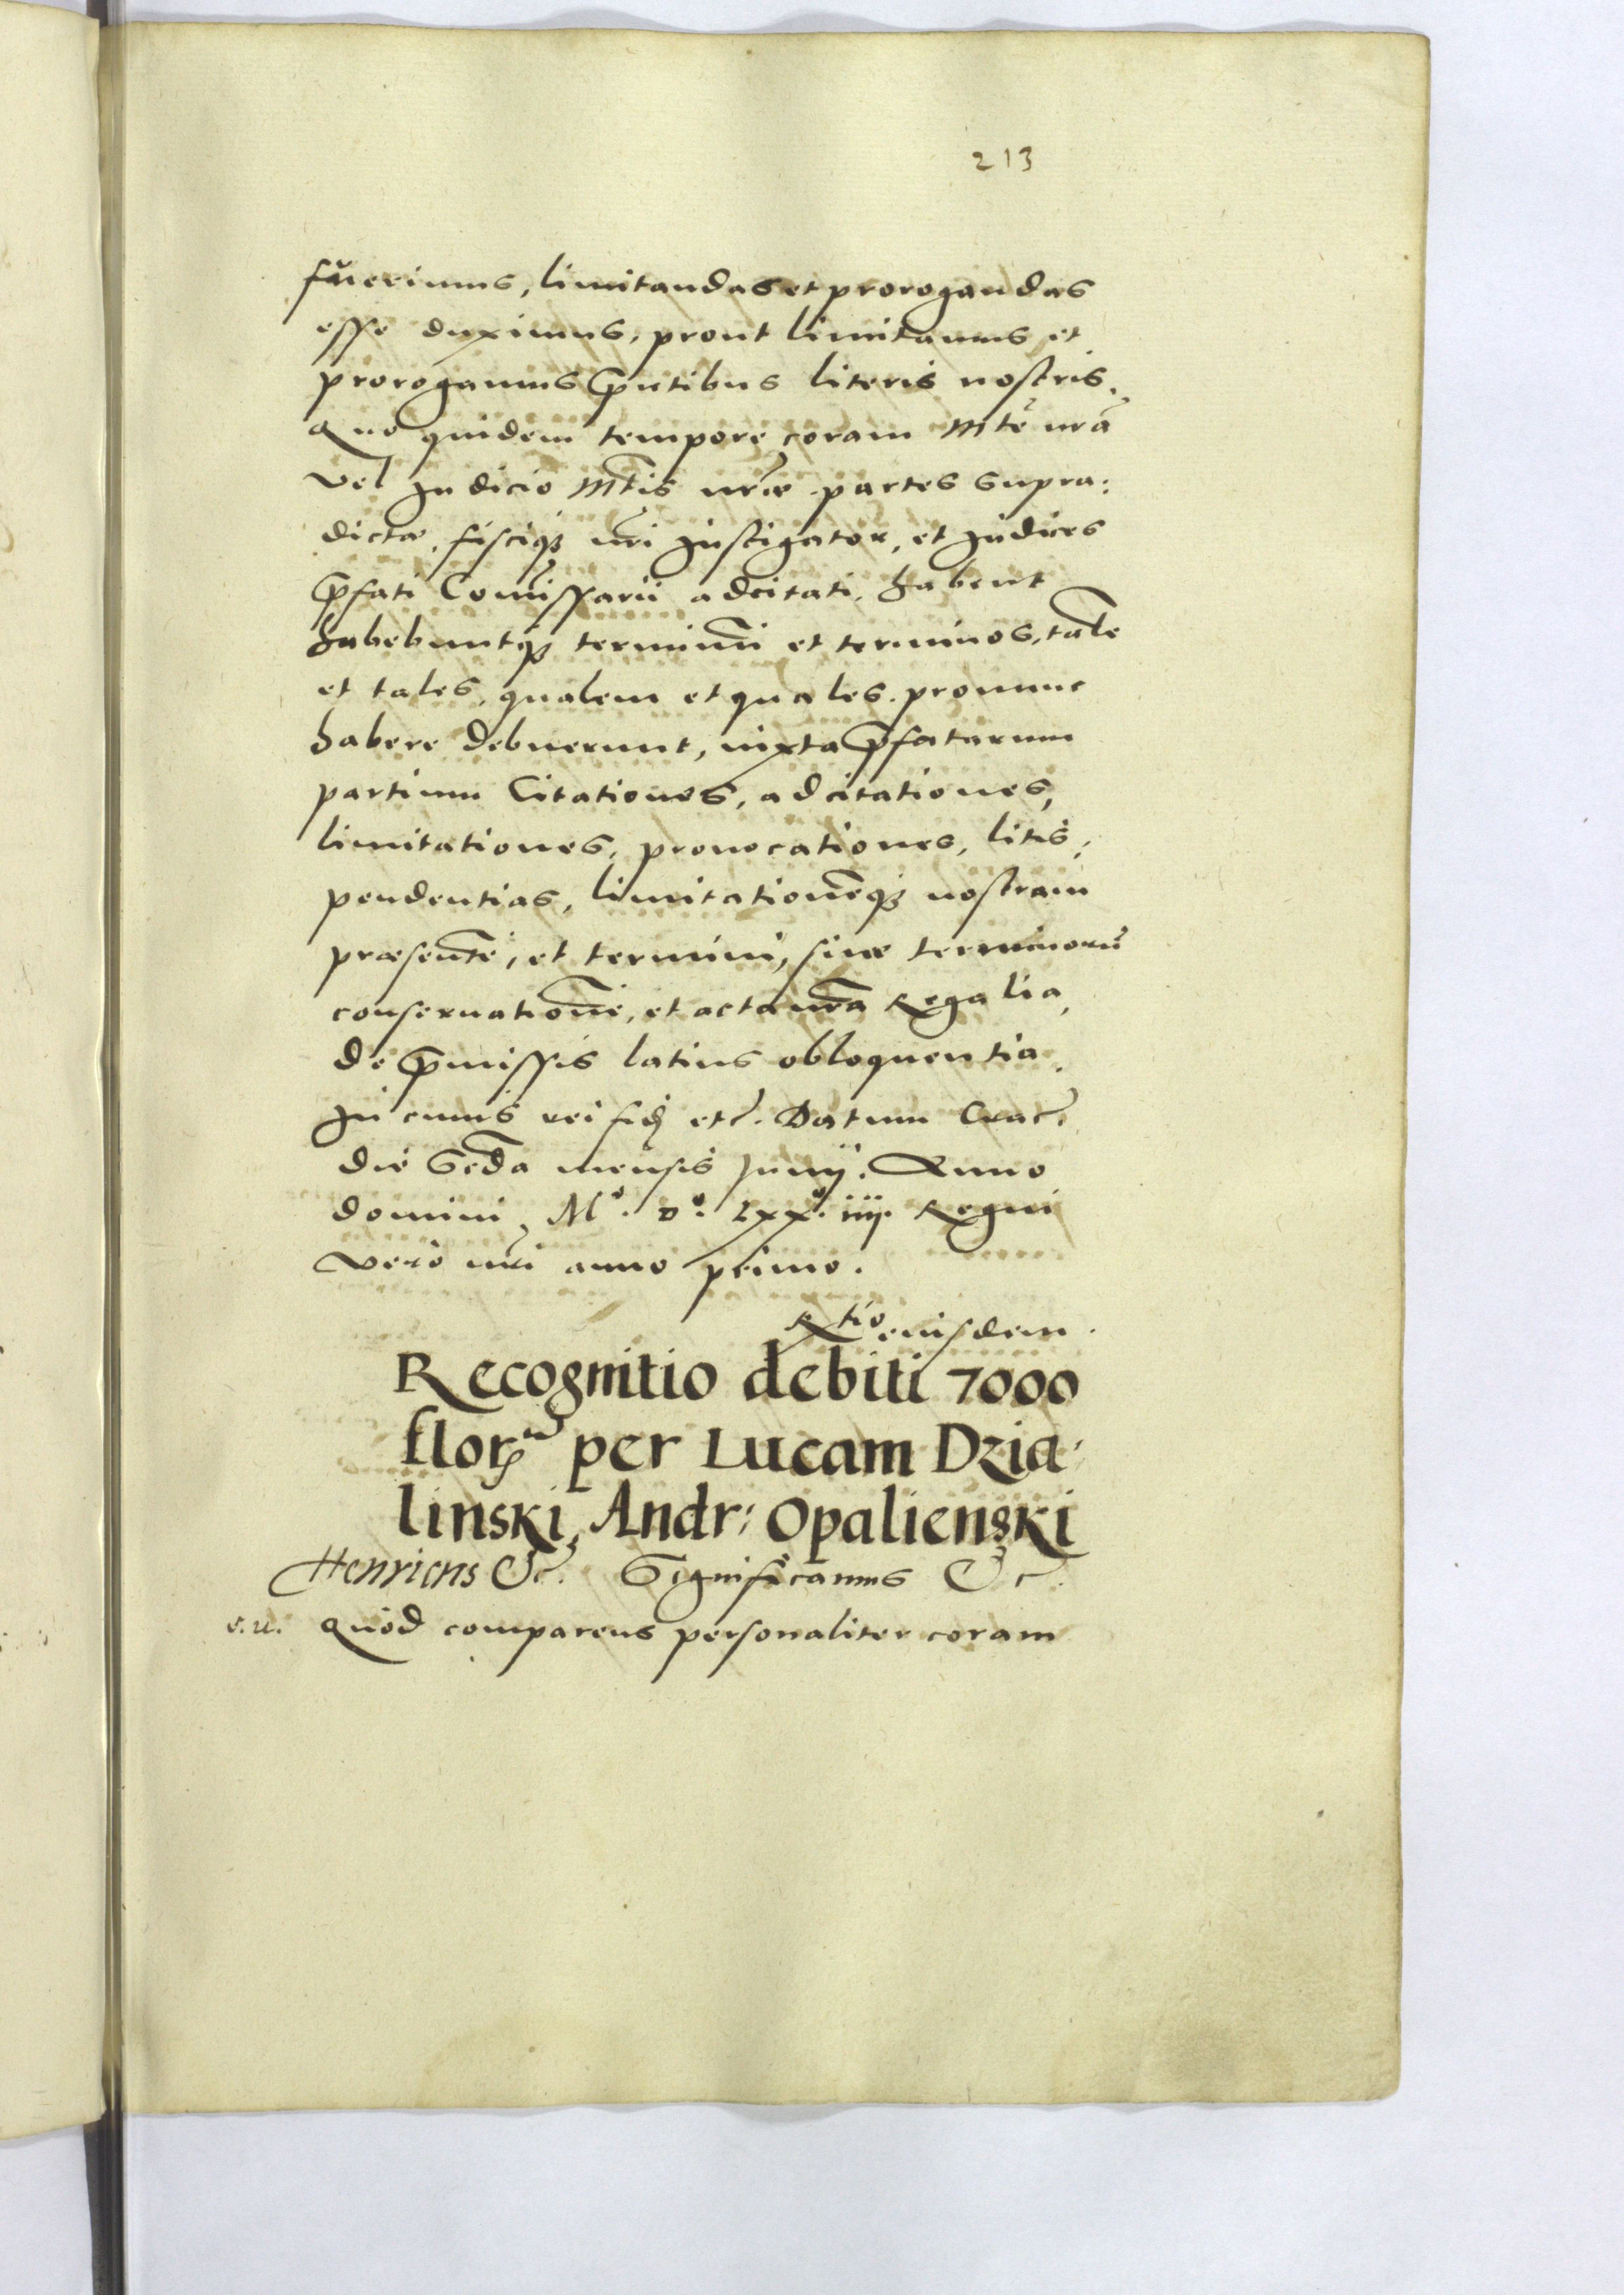 213
fuerimus, limitandas et prorogandas
esse duximus, prout limitamus et
prorogamus p̄ntibus literis nostris.
Quo quidem tempore coram Mte nrā
vel Judicio Mtis nrae partes supra:
dictae, fisciq; nri Instigator, et Judices
p̄fati Comissarii adcitati, habent
habebuntq; terminū et terminos, tale
et tales, qualem et quales pronunc
habere debuerunt, iuxta p̄fatarum
partium Citationes, adcitationes,
limitationes, prouocationes, litis:
pendentias, limitationēq; nostram
praesentē, et termini, siue terminorū
conseruationē, et acta nrā Regalia,
de p̄missis latius obloquentia.
In cuius rei fid etc. Datum Crac:
die Scda mensis Junij. Anno
domini, Mº. Dº. Lxxº. iiij. Regni
vero nri anno primo.
Rtio eiusdem.
Recognitio debiti 7000
flor per Lucam Dzia:
linski, Andr: Opalienski
Henricus &c. Significamus &c.
Quod comparens personaliter coram